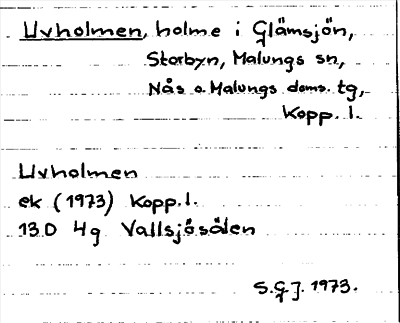 Uvholmen, holme i Glämsjön,
Storbyn, Malungs sn,
Nås o. Malungs doms. tg,
Kopp. l.
Uvholmen
ek (1973) Kopp. l.
13D 4g Vallsjösälen
S.G.J. 1973.